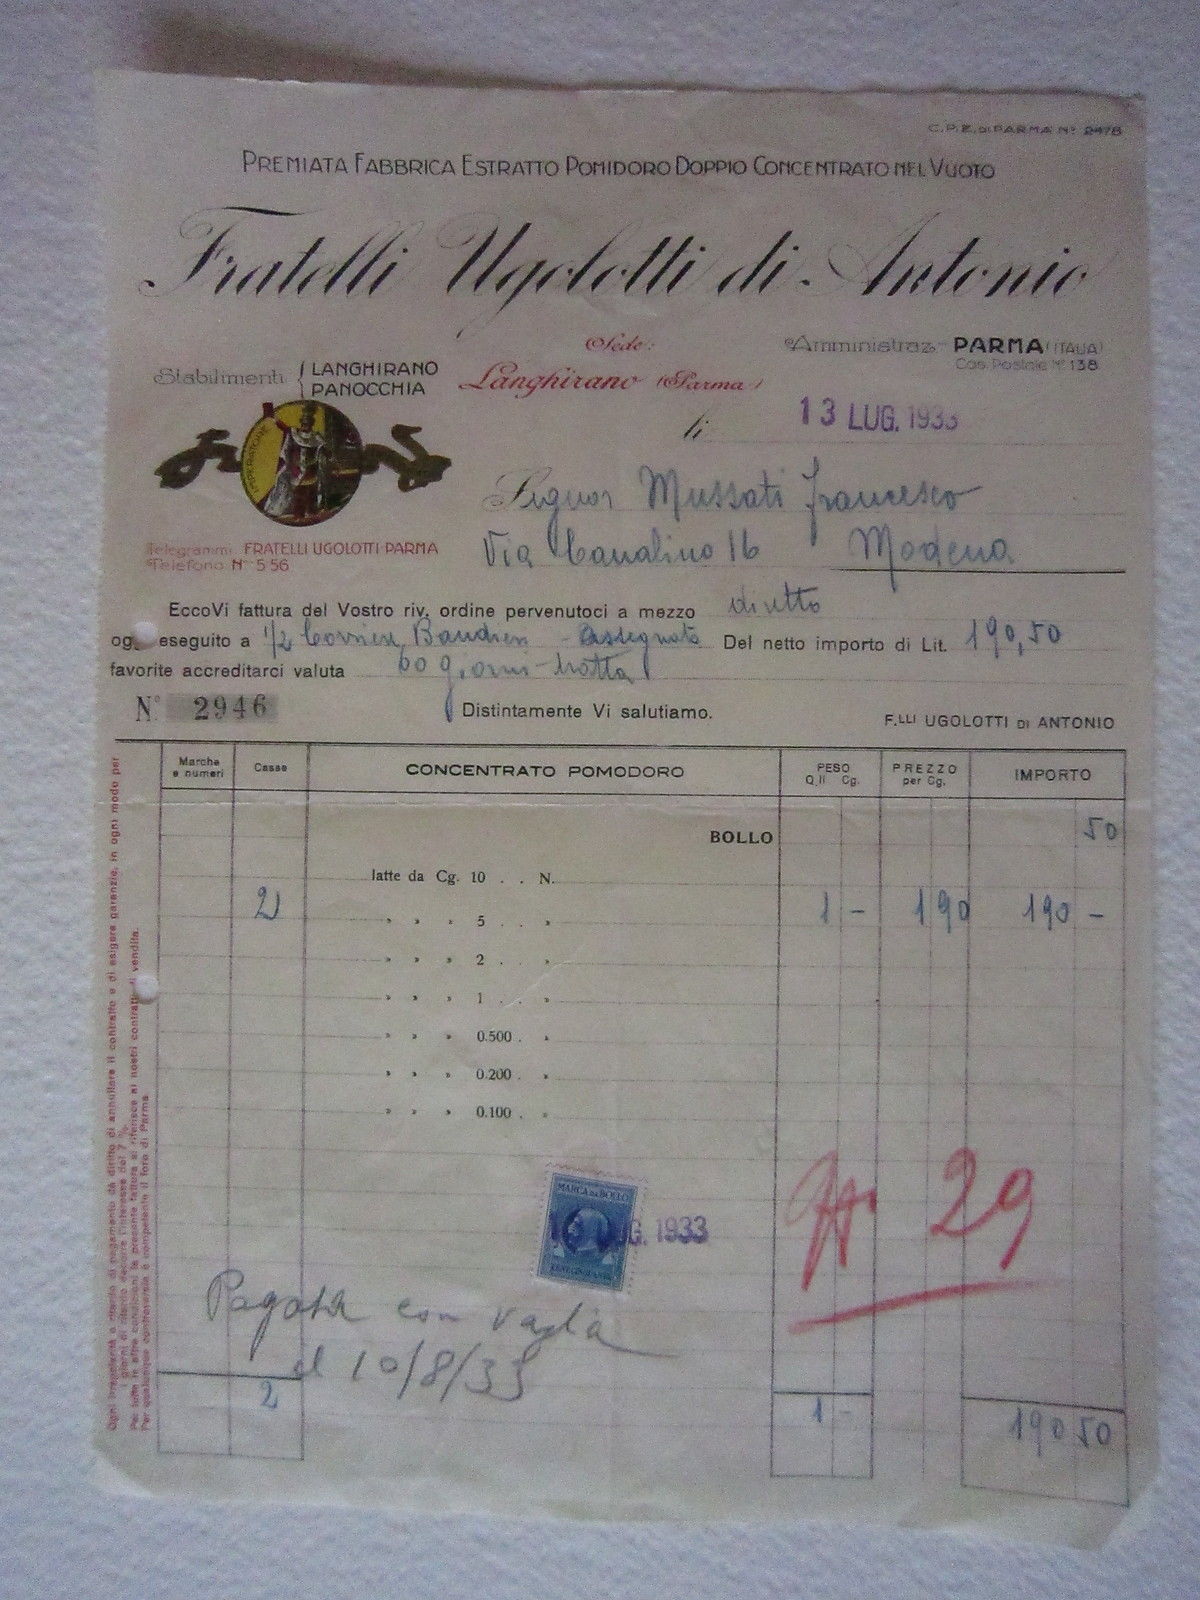 C.P.E. DI PARMA N° 2478
PREMIATA FABBRICA ESTRATTO POMIDORO DOPPIO CONCENTRATO NEL VUOTO
Fratelli Ugolotti di Antonio
Stabilimenti LANGHIRANO
PANOCCHIA
Sede:
Langhirano (Parma)
Amministraz. PARMA (ITALIA)
Cas. Postale N° 138
li 13 LUG. 1933
IMPERATORE
Signor Mussati Francesco
Via Canalino 16 Modena
Telegrammi FRATELLI UGOLOTTI-PARMA
Telefono N° 5-56
EccoVi fattura del Vostro riv. ordine pervenutoci a mezzo diretto
oggi eseguito a 1/2 - Assegnato Del netto importo di Lit. 190,50
favorite accreditarci valuta 60 giorni - tratta
N° 2946
Distintamente Vi salutiamo.
F.LLI UGOLOTTI DI ANTONIO
Marche e numeri Casse CONCENTRATO POMODORO PESO Q.li Cg. PREZZO per Cg. IMPORTO
BOLLO 50
latte da Cg. 10 . . N.
2 » » » 5 . . » 1 - 190 190 -
» » » 2 . . »
» » » 1 . . »
» » » 0.500 . »
» » » 0.200 . »
» » » 0.100 . »
29
MARCA DA BOLLO
LUG. 1933
Pagata con vaglia
il 10/8/33
2 1 - 190 50
Ogni irregolarità o ritardo di pagamento dà diritto di annullare il contratto e di esigere garanzie, in ogni modo per
i giorni di ritardo decorre l'interesse del 7 %.
Per tutte le altre condizioni la presente fattura si riferisce ai nostri contratti di vendita.
Per qualunque controversia è competente il foro di Parma.